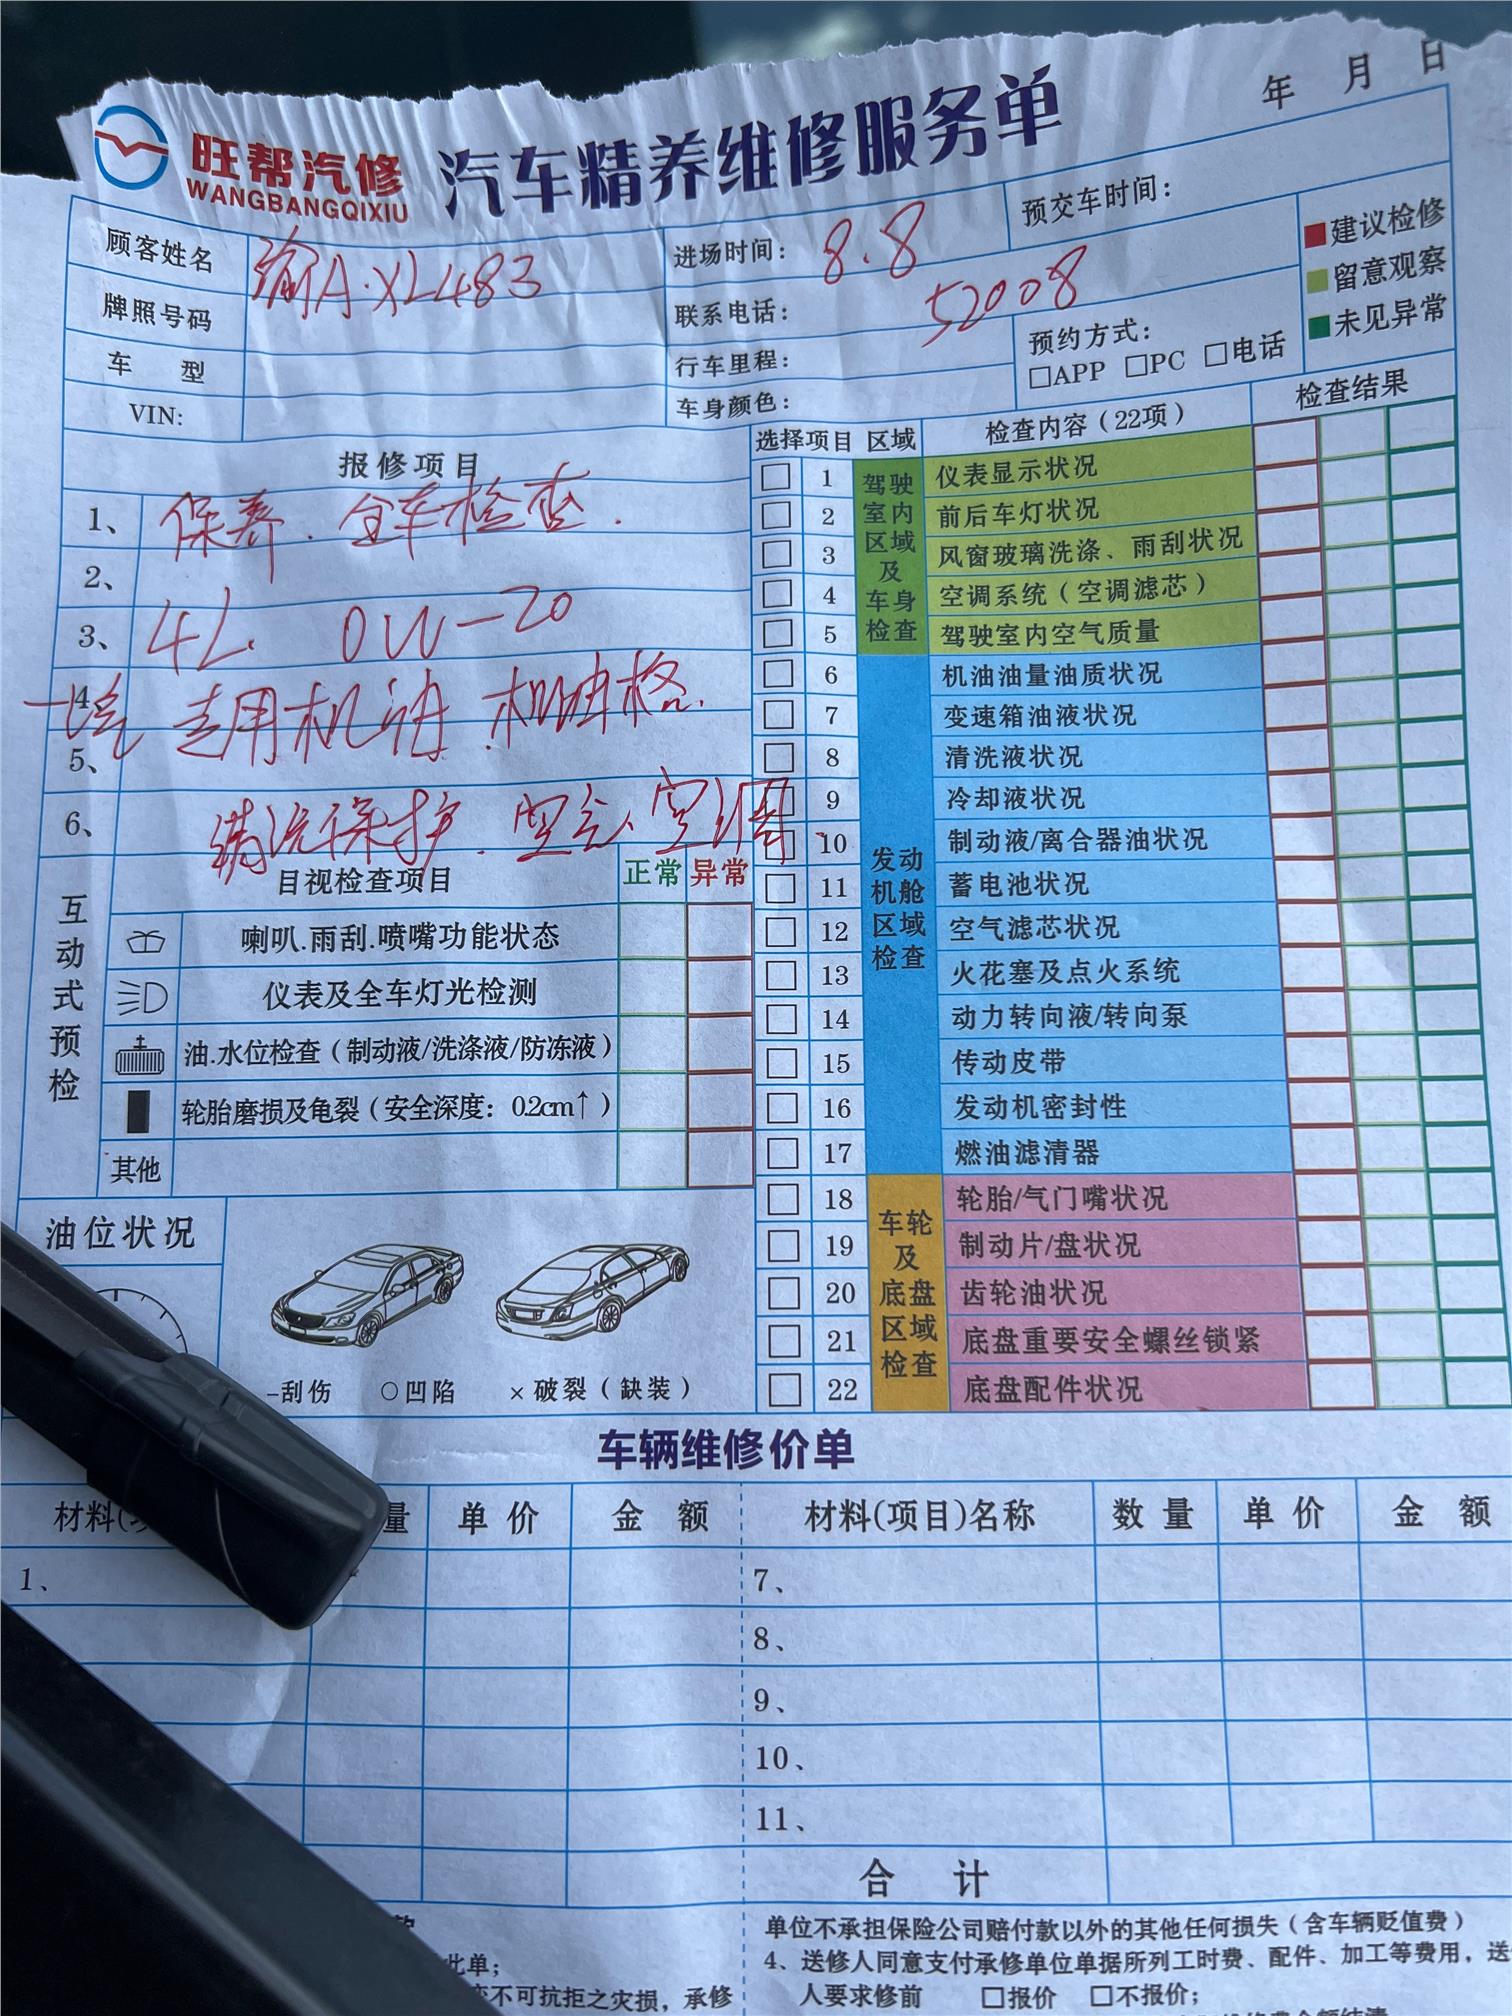 年 月 日
旺帮汽修 汽车精养维修服务单
WANGBANGQIXIU
顾客姓名
渝A·XL483
牌照号码
车 型
VIN:
进场时间: 8.8
预交车时间:
联系电话:
52008
行车里程:
车身颜色:
预约方式:
□APP □PC □电话
建议检修
留意观察
未见异常
报修项目
1、保养.全车检查.
2、
3、4L. 0W-20
4
一汽专用机油.机油格.
5、
6、清洗保护.空气、空调
选择 项目 区域 检查内容(22项) 检查结果
驾驶室内区域及车身检查
1 仪表显示状况
2 前后车灯状况
3 风窗玻璃洗涤、雨刮状况
4 空调系统(空调滤芯)
5 驾驶室内空气质量
发动机舱区域检查
6 机油油量油质状况
7 变速箱油液状况
8 清洗液状况
9 冷却液状况
10 制动液/离合器油状况
11 蓄电池状况
12 空气滤芯状况
13 火花塞及点火系统
14 动力转向液/转向泵
15 传动皮带
16 发动机密封性
17 燃油滤清器
车轮及底盘区域检查
18 轮胎/气门嘴状况
19 制动片/盘状况
20 齿轮油状况
21 底盘重要安全螺丝锁紧
22 底盘配件状况
互动式预检
目视检查项目 正常 异常
喇叭.雨刮.喷嘴功能状态
仪表及全车灯光检测
油.水位检查(制动液/洗涤液/防冻液)
轮胎磨损及龟裂(安全深度: 0.2cm↑)
其他
油位状况
-刮伤 ○凹陷 ×破裂(缺装)
车辆维修价单
材料( 量 单价 金额 材料(项目)名称 数量 单价 金额
1、 7、
8、
9、
10、
11、
合 计
此单;
不可抗拒之灾损,承修
单位不承担保险公司赔付款以外的其他任何损失(含车辆贬值费)
4、送修人同意支付承修单位单据所列工时费、配件、加工等费用,送
人要求修前 □报价 □不报价;